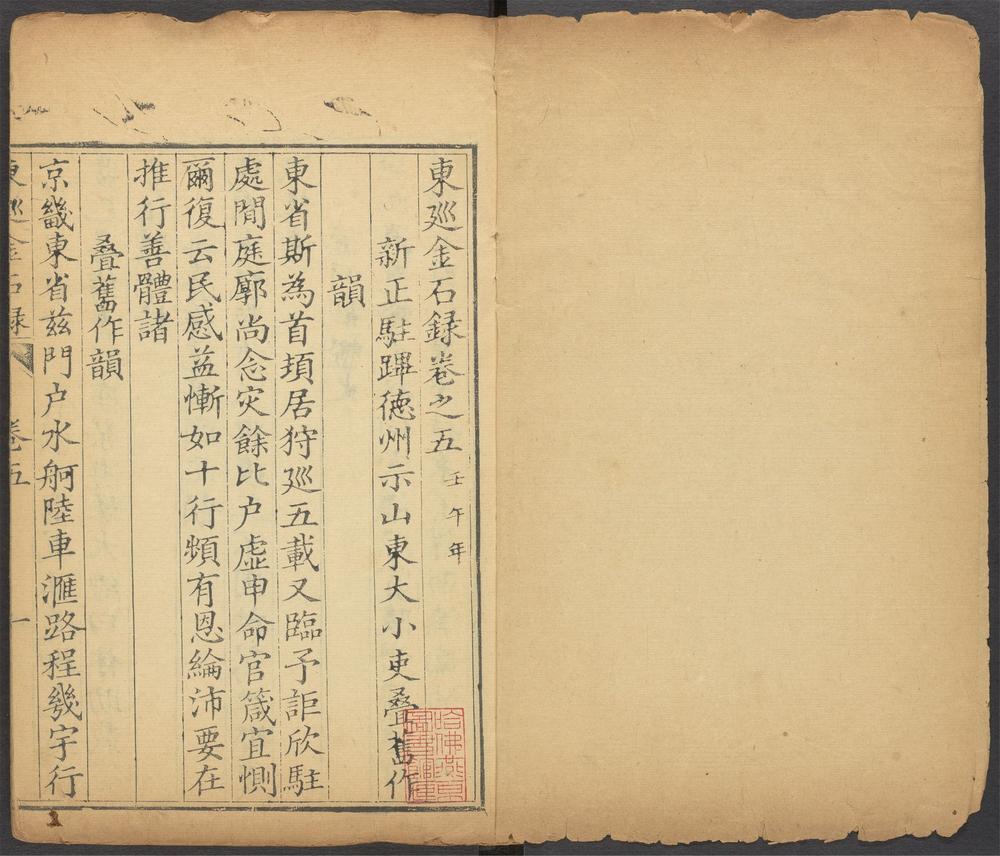 東廵金石録卷之五 壬午年
新正駐蹕徳州示山東大小吏叠舊作
韻
東省斯為首頊居狩廵五載又臨予詎欣駐
處閒庭廓尚念灾餘比户虚申命官箴宜惻
爾復云民感益慚如十行頻有恩綸沛要在
推行善體諸
叠舊作韻
京畿東省兹門户水舸陸車滙路程幾宇行
東廵金石録 卷五 一
哈佛燕京圖書館